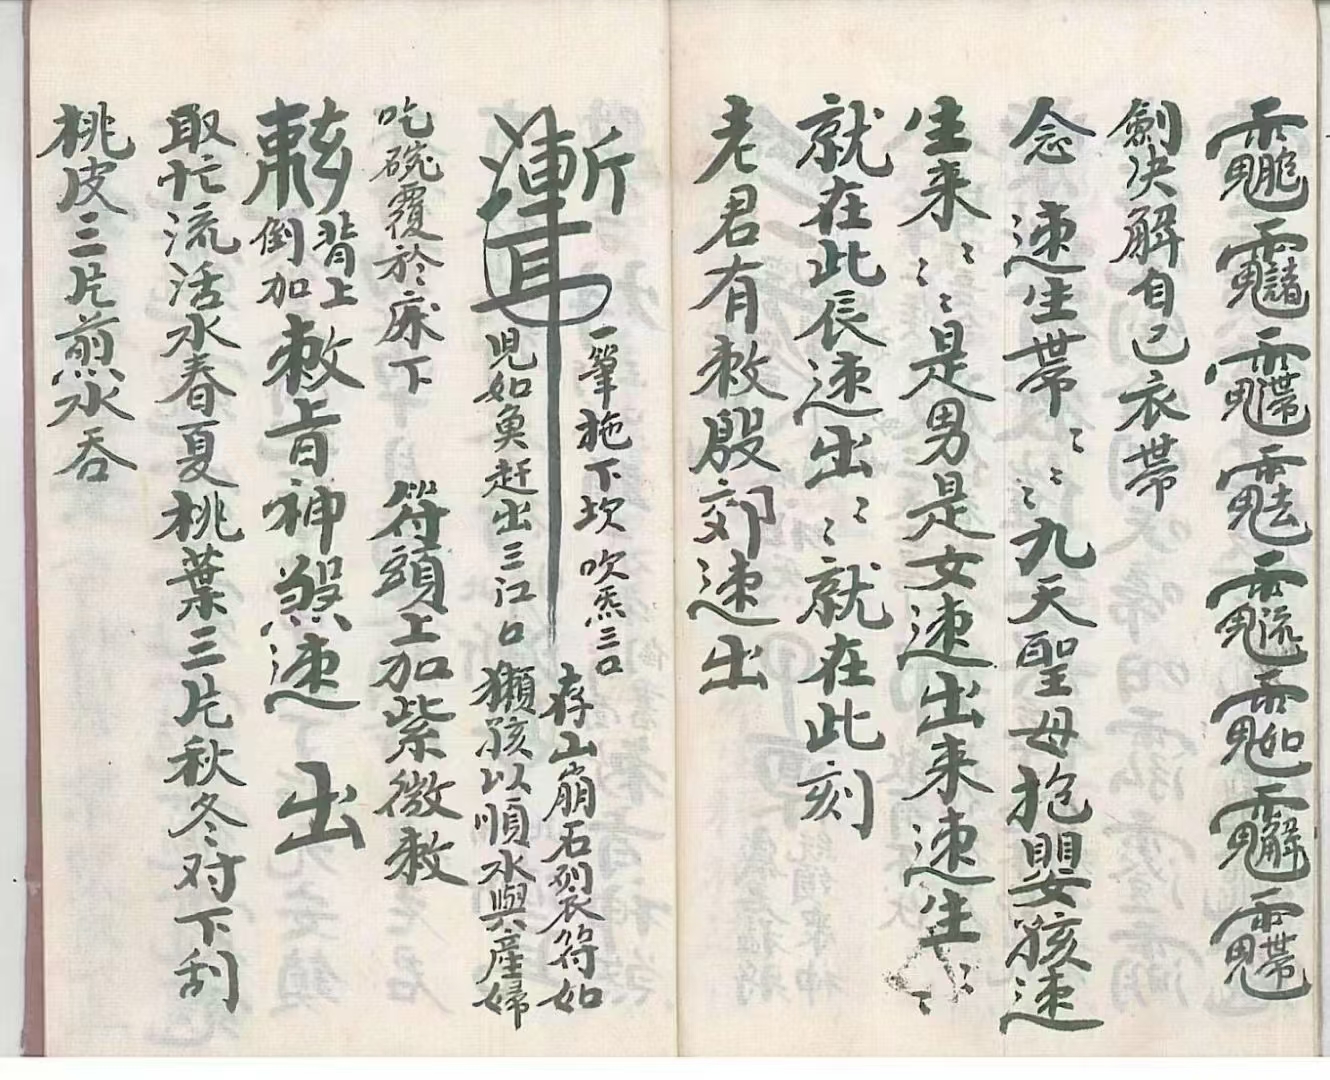 劍决解自己衣帶
念 速生帶〻〻九天聖母抱嬰孩速
生来〻〻是男是女速出来速生〻〻
就在此辰速出〻〻就在此刻
老君有敕殷郊速出
一筆拖下坎吹炁三口 存山崩石裂符如
児如魚赶出三江口 獺孩以順水與產婦
吃碗覆於床下 符頭上加紫微敕
背上倒加敕旨神煞速 出
取忙流活水春夏桃葉三片秋冬对下刮
桃皮三片煎水吞